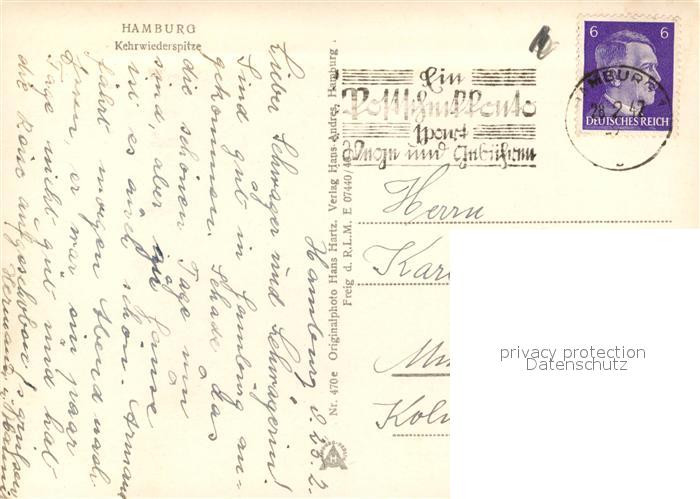 HAMBURG
Kehrwiederspitze
Hamburg d 28.2.
Lieber Schwager und Schwägerin!
Sind gut in Hamburg an-
gekommen. Schade das
die schönen Tage nun
sind aber
wie es auch schön.
fährt morgen Abend nach
er war ein paar
Tage nicht gut und hat
die Reise aufgeschoben. Es grüßen
Hermann u.
Nr. 470e Originalphoto Hans Hartz, Verlag Hans Andres, Hamburg 1
Freig d. R.L.M. E 07440/4
Ein
Postscheckkonto
spart
Wege und Gebühren
HAMBURG 1
28.2.42
6 6
DEUTSCHES REICH
Herrn
Kar
Köln
privacy protection
Datenschutz